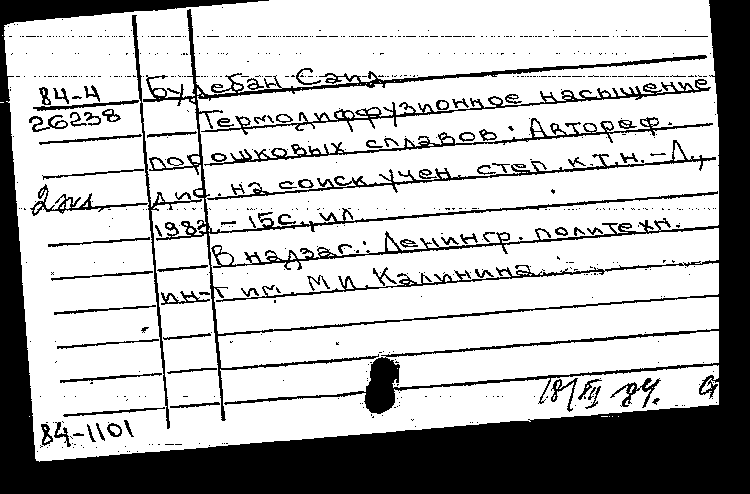 84-4
26238
2 экз.
Будебан, Саид
Термодиффузионное насыщение
порошковых сплавов: Автореф.
дис. на соиск. учен. степ. к.т.н. - Л.,
1983. - 15с., ил
В надзаг.: Ленингр. политехн.
ин-т им. М.И. Калинина
84-1101